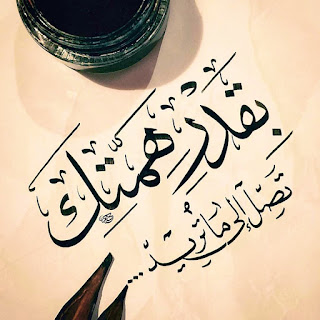 بِقَدْرِ هِمَّتِكَ
تَصِلُ إلى مَا تُرِيدُ...